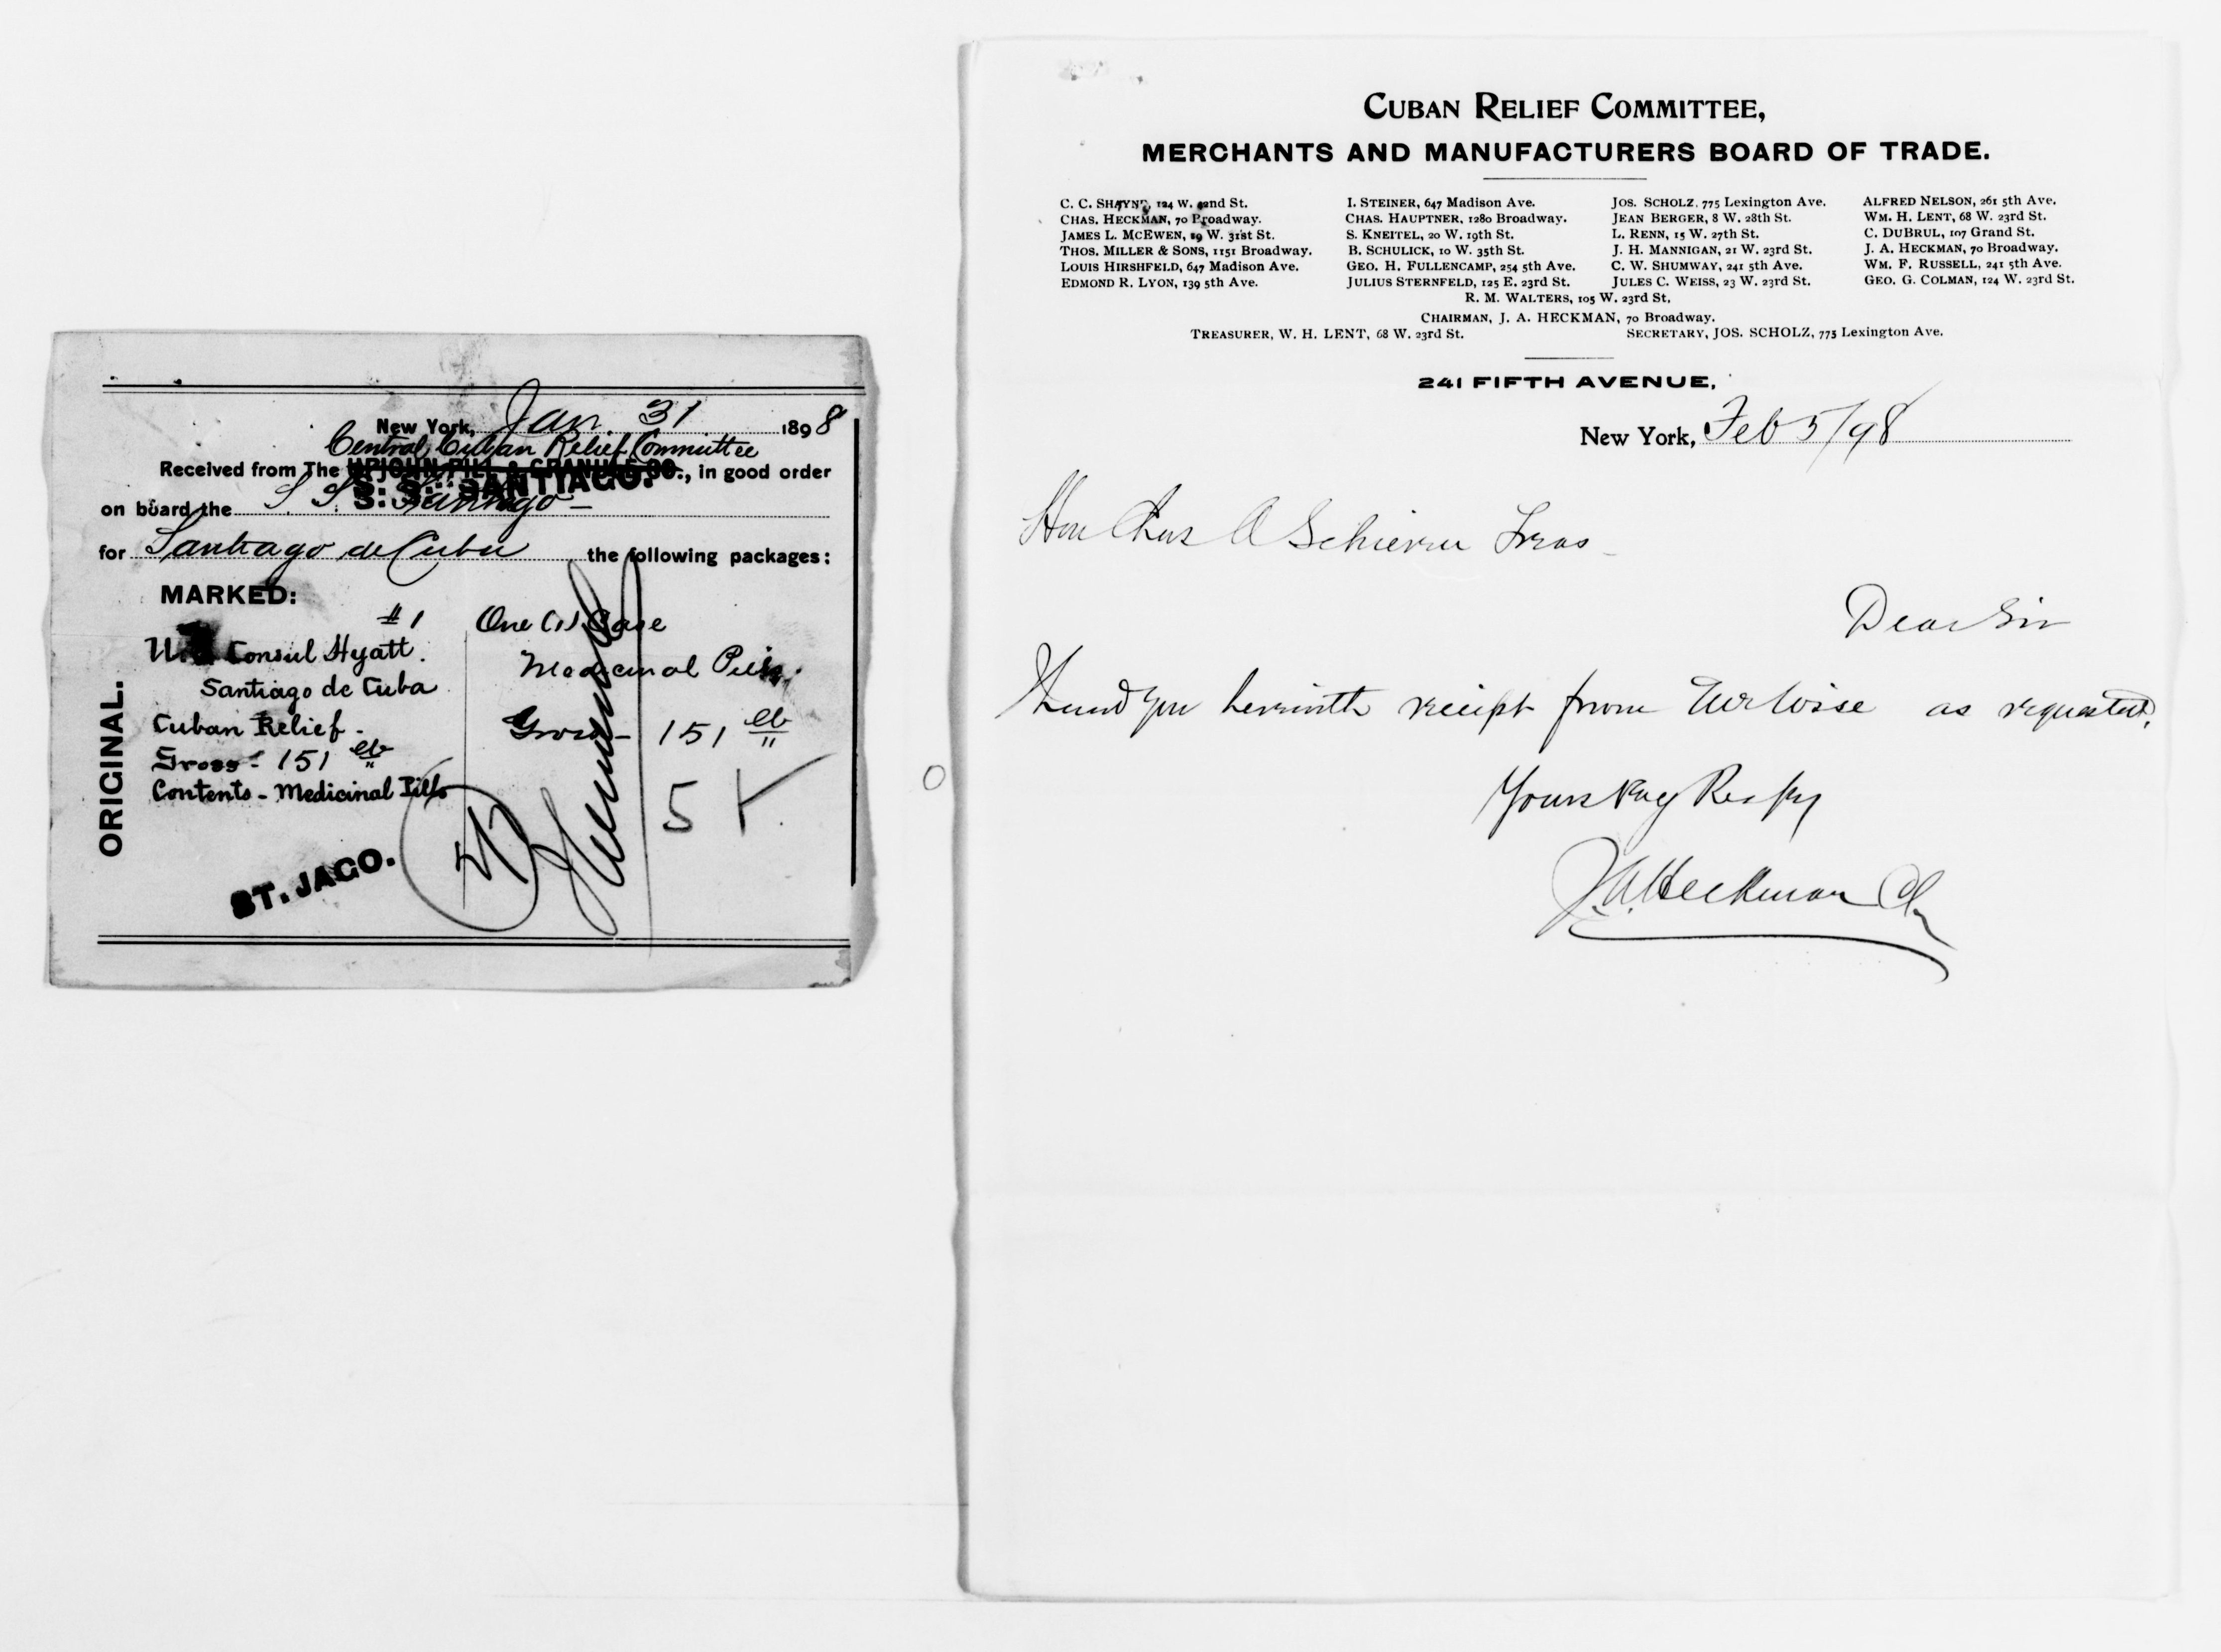 New York, Jan. 31 1898
Central Cuban Relief Committee
Received from The UPJOHN PILL & GRANULE CO., in good order
S. S. SANTIAGO.
on board the S. S. Santiago
for Santiago de Cuba the following packages:
MARKED:
#1
U. Consul Hyatt.
Santiago de Cuba
Cuban Relief -
Gross - 151 lb
Contents - Medicinal Pills
One (1) Case
Medicinal Pills.
Gross - 151 lb
5
ORIGINAL.
ST. JAGO.
CUBAN RELIEF COMMITTEE,
MERCHANTS AND MANUFACTURERS BOARD OF TRADE.
C. C. SHAYNE, 124 W. 42nd St.
CHAS. HECKMAN, 70 Broadway.
JAMES L. MCEWEN, 19 W. 31st St.
THOS. MILLER & SONS, 1151 Broadway.
LOUIS HIRSHFELD, 647 Madison Ave.
EDMOND R. LYON, 139 5th Ave.
I. STEINER, 647 Madison Ave.
CHAS. HAUPTNER, 1280 Broadway.
S. KNEITEL, 20 W. 19th St.
B. SCHULICK, 10 W. 35th St.
GEO. H. FULLENCAMP, 254 5th Ave.
JULIUS STERNFELD, 125 E. 23rd St.
JOS. SCHOLZ, 775 Lexington Ave.
JEAN BERGER, 8 W. 28th St.
L. RENN, 15 W. 27th St.
J. H. MANNIGAN, 21 W. 23rd St.
C. W. SHUMWAY, 241 5th Ave.
JULES C. WEISS, 23 W. 23rd St.
ALFRED NELSON, 261 5th Ave.
WM. H. LENT, 68 W. 23rd St.
C. DUBRUL, 107 Grand St.
J. A. HECKMAN, 70 Broadway.
WM. F. RUSSELL, 241 5th Ave.
GEO. G. COLMAN, 124 W. 23rd St.
R. M. WALTERS, 105 W. 23rd St.
CHAIRMAN, J. A. HECKMAN, 70 Broadway.
TREASURER, W. H. LENT, 68 W. 23rd St.
SECRETARY, JOS. SCHOLZ, 775 Lexington Ave.
241 FIFTH AVENUE,
New York, Feb 5/98
Hon Chas A Schieren Treas -
Dear Sir
I hand you herewith reciept from Mr Wise as requested.
Yours Very Respy
J. A. Heckman Ch